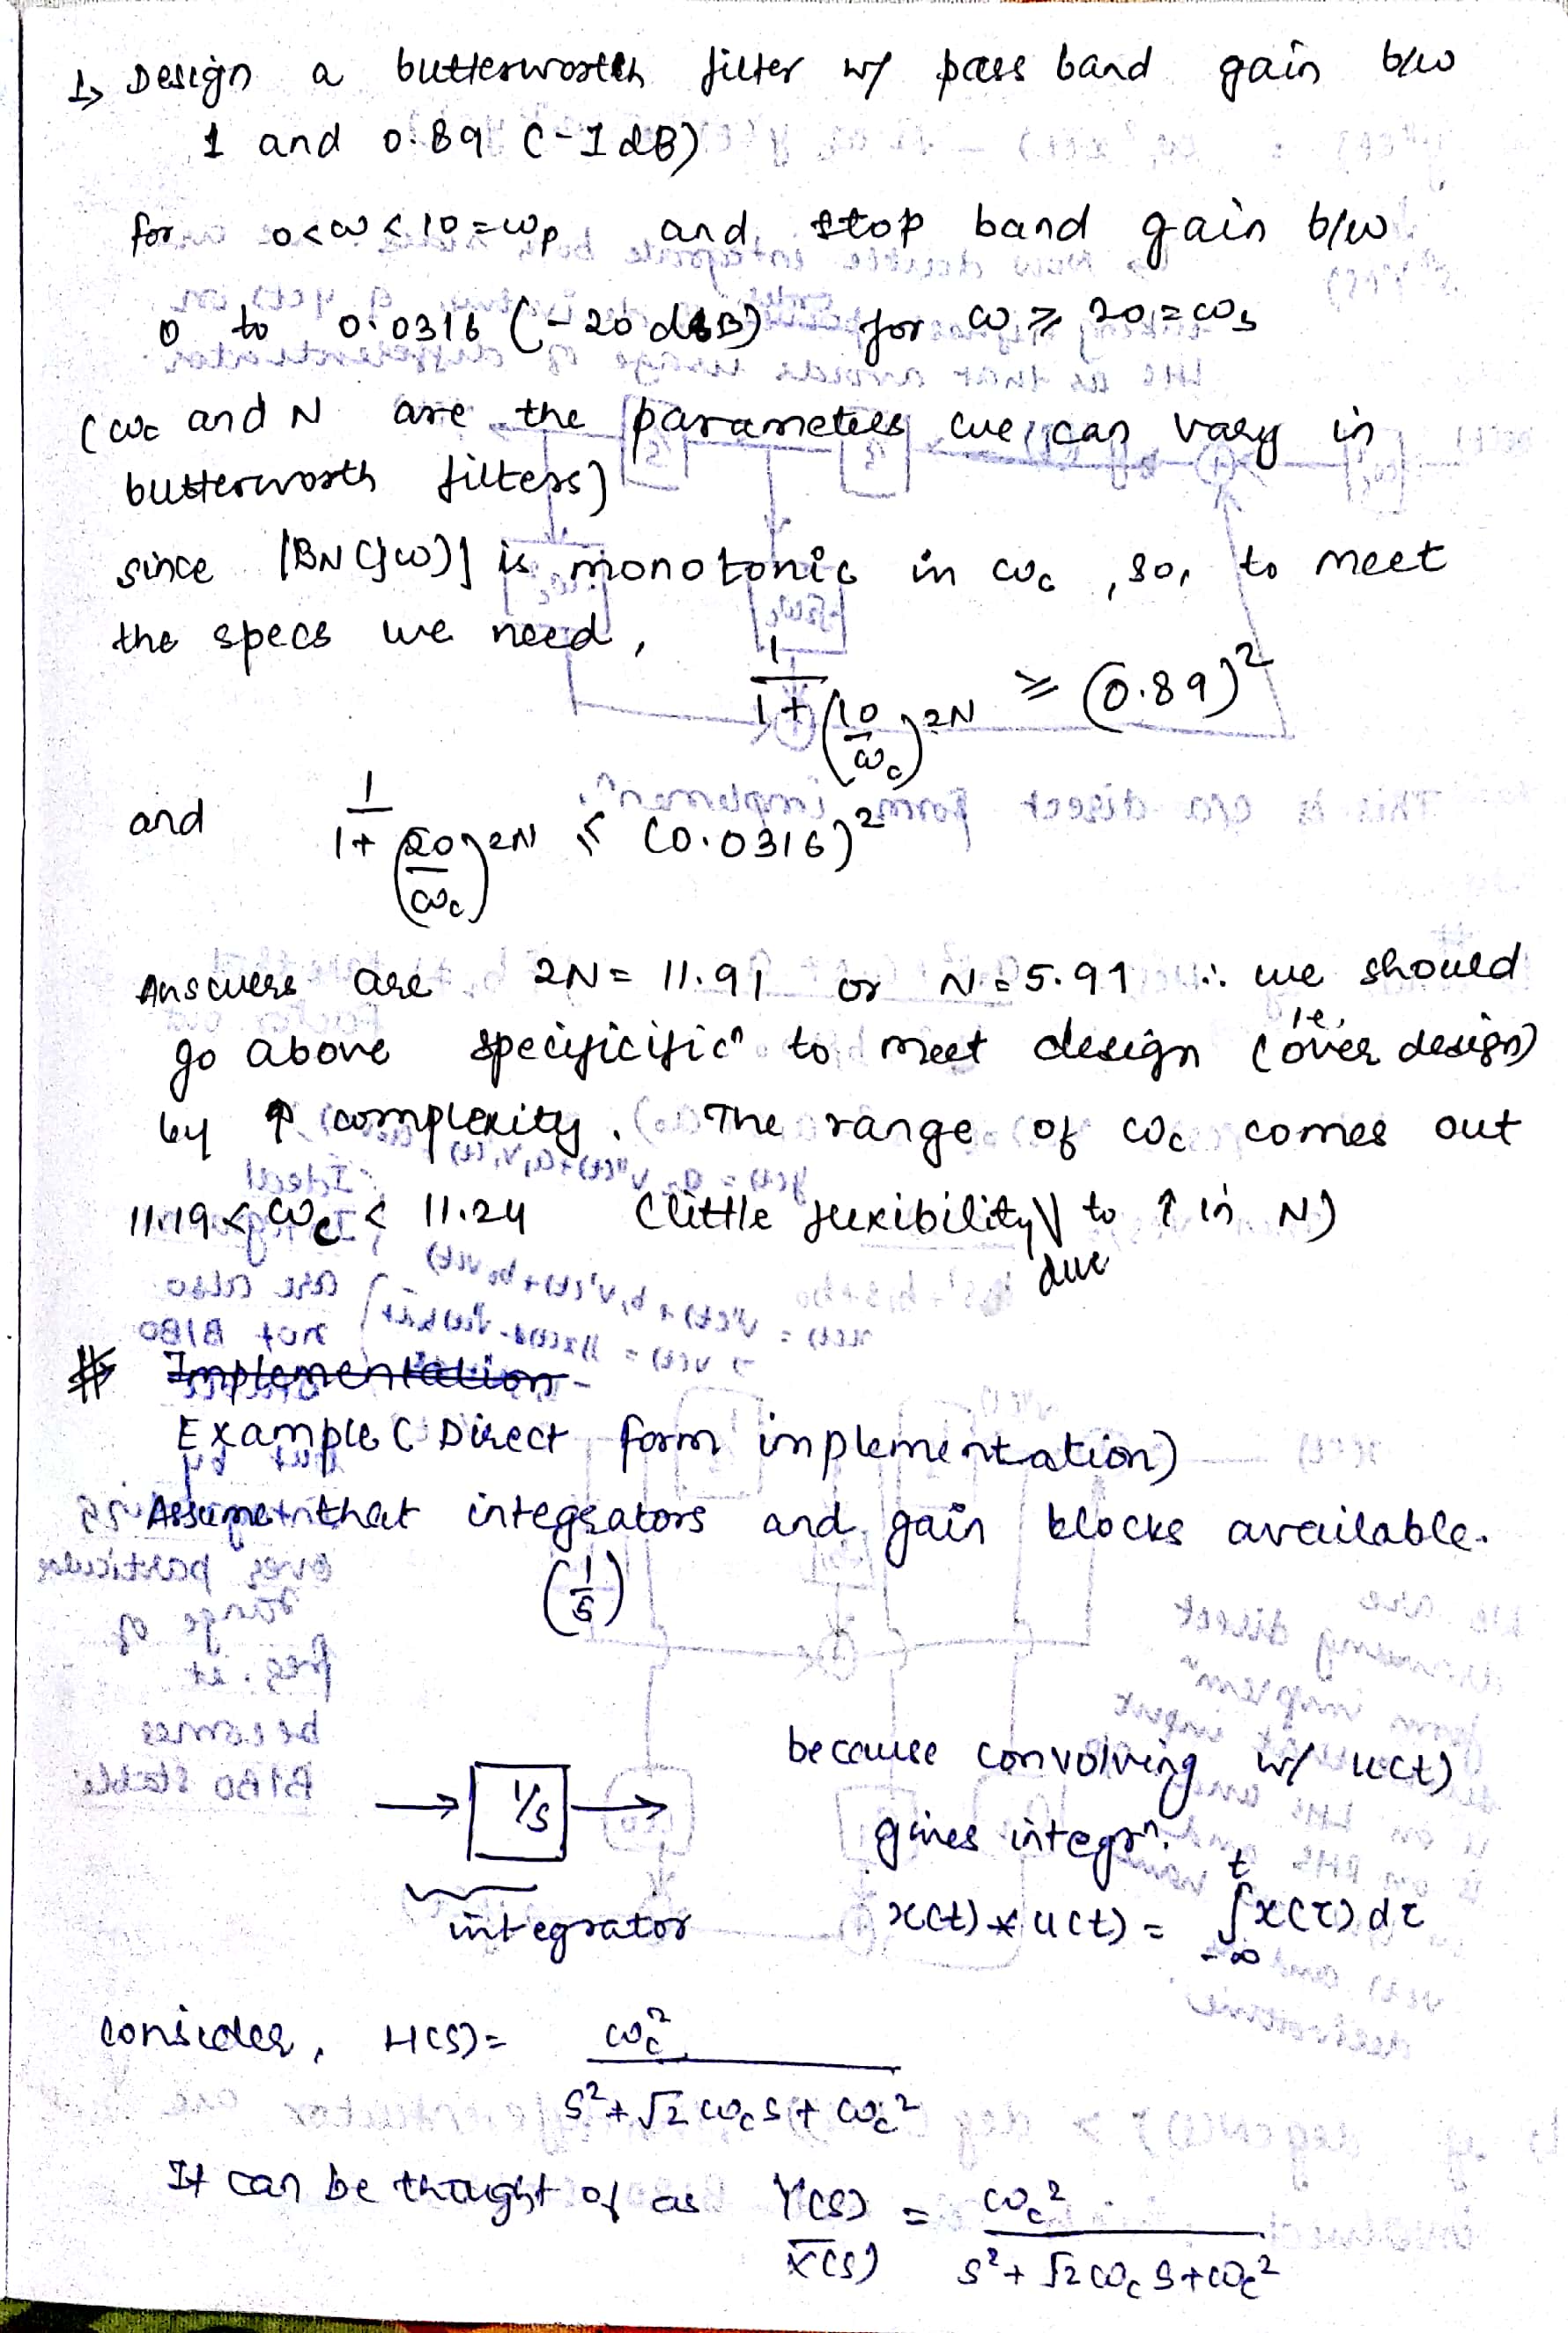 ↳ Design a butterworth filter w/ pass band gain b/w
1 and 0.89 (-1dB)
for 0<ω<10=ωp and stop band gain b/w
0 to 0.0316 (-20 dB) for ω ≥ 20=ωs
(ωc and N are the parameters we can vary in
butterworth filters)
since |BN(jω)| is monotonic in ωc, so, to meet
the specs we need, 1/(1+(10/ωc)^2N) ≥ (0.89)²
and 1/(1+(20/ωc)^2N) ≤ (0.0316)²
Answers are 2N = 11.91 or N=5.91 ∴ we should
go above specificificⁿ to meet design (ie, over design)
by ↑ complexity. The range of ωc comes out
11.19 < ωc < 11.24 (little flexibility due to ↑ in N)
# Implementation
Example (Direct form implementation)
Assume that integrators and gain blocks available.
(1/s)
→ 1/s →
integrator
because convolving w/ u(t)
gives integrⁿ.
x(t) * u(t) = ∫_{-∞}^{t} x(τ) dτ
consider, H(s) = ωc² / (s² + √2 ωc s + ωc²)
It can be thought of as Y(s)/X(s) = ωc² / (s² + √2 ωc s + ωc²)